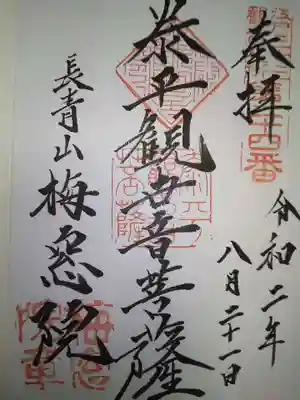 奉拝
令和二年
八月二十一日
泰平観世音菩薩
長青山梅窓院
四番
梅窓
院章